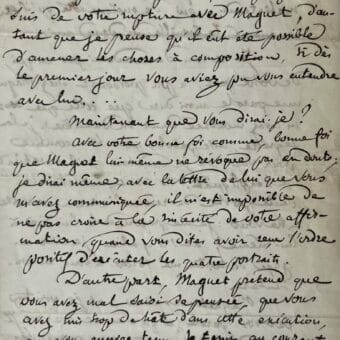 suis de votre rupture avec Maquet, d'au-
tant que je pense qu'il eut été possible
d'amener les choses à composition, si dès
le premier jour vous aviez pu vous entendre
avec lui....
Maintenant que vous dirai-je?
avec votre bonne foi connue, bonne foi
que Maquet lui même ne révoque pas en doute;
je dirai même, avec la lettre de lui que vous
m'avez communiquée, il m'est impossible de
ne pas croire à la sincérité de votre affir-
mation, quand vous dites avoir reçu l'ordre
positif d'exécuter les quatre portraits.
D'autre part, Maquet prétend que
vous avez mal saisi sa pensée, que vous
avez mis trop de hâte dans cette exécution,